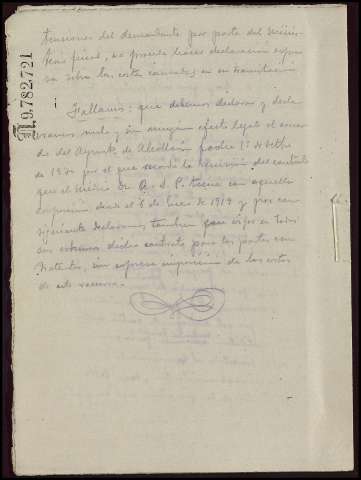 tensiones del demandante por parte del Minis-
terio fiscal, no procede hacer declaración expre-
sa sobre las costas causadas en su tramitación
Fallamos: que debemos declarar y decla-
ramos nulo y sin ningun efecto legal el acuer-
do del Ayunt° de Alcollarin fecha 1° de Setbre
de 1921 por el que acordó la rescisión del contrato
que el Médico D. S. P. tiene con aquella
corporación desde el 6 de Enero de 1919 y por con-
siguiente declaramos tambien en vigor en todos
sus extremos dicho contrato para las partes con-
tratantes, sin expresa imposición de las costas
de este recurso.-
N.9.782.721